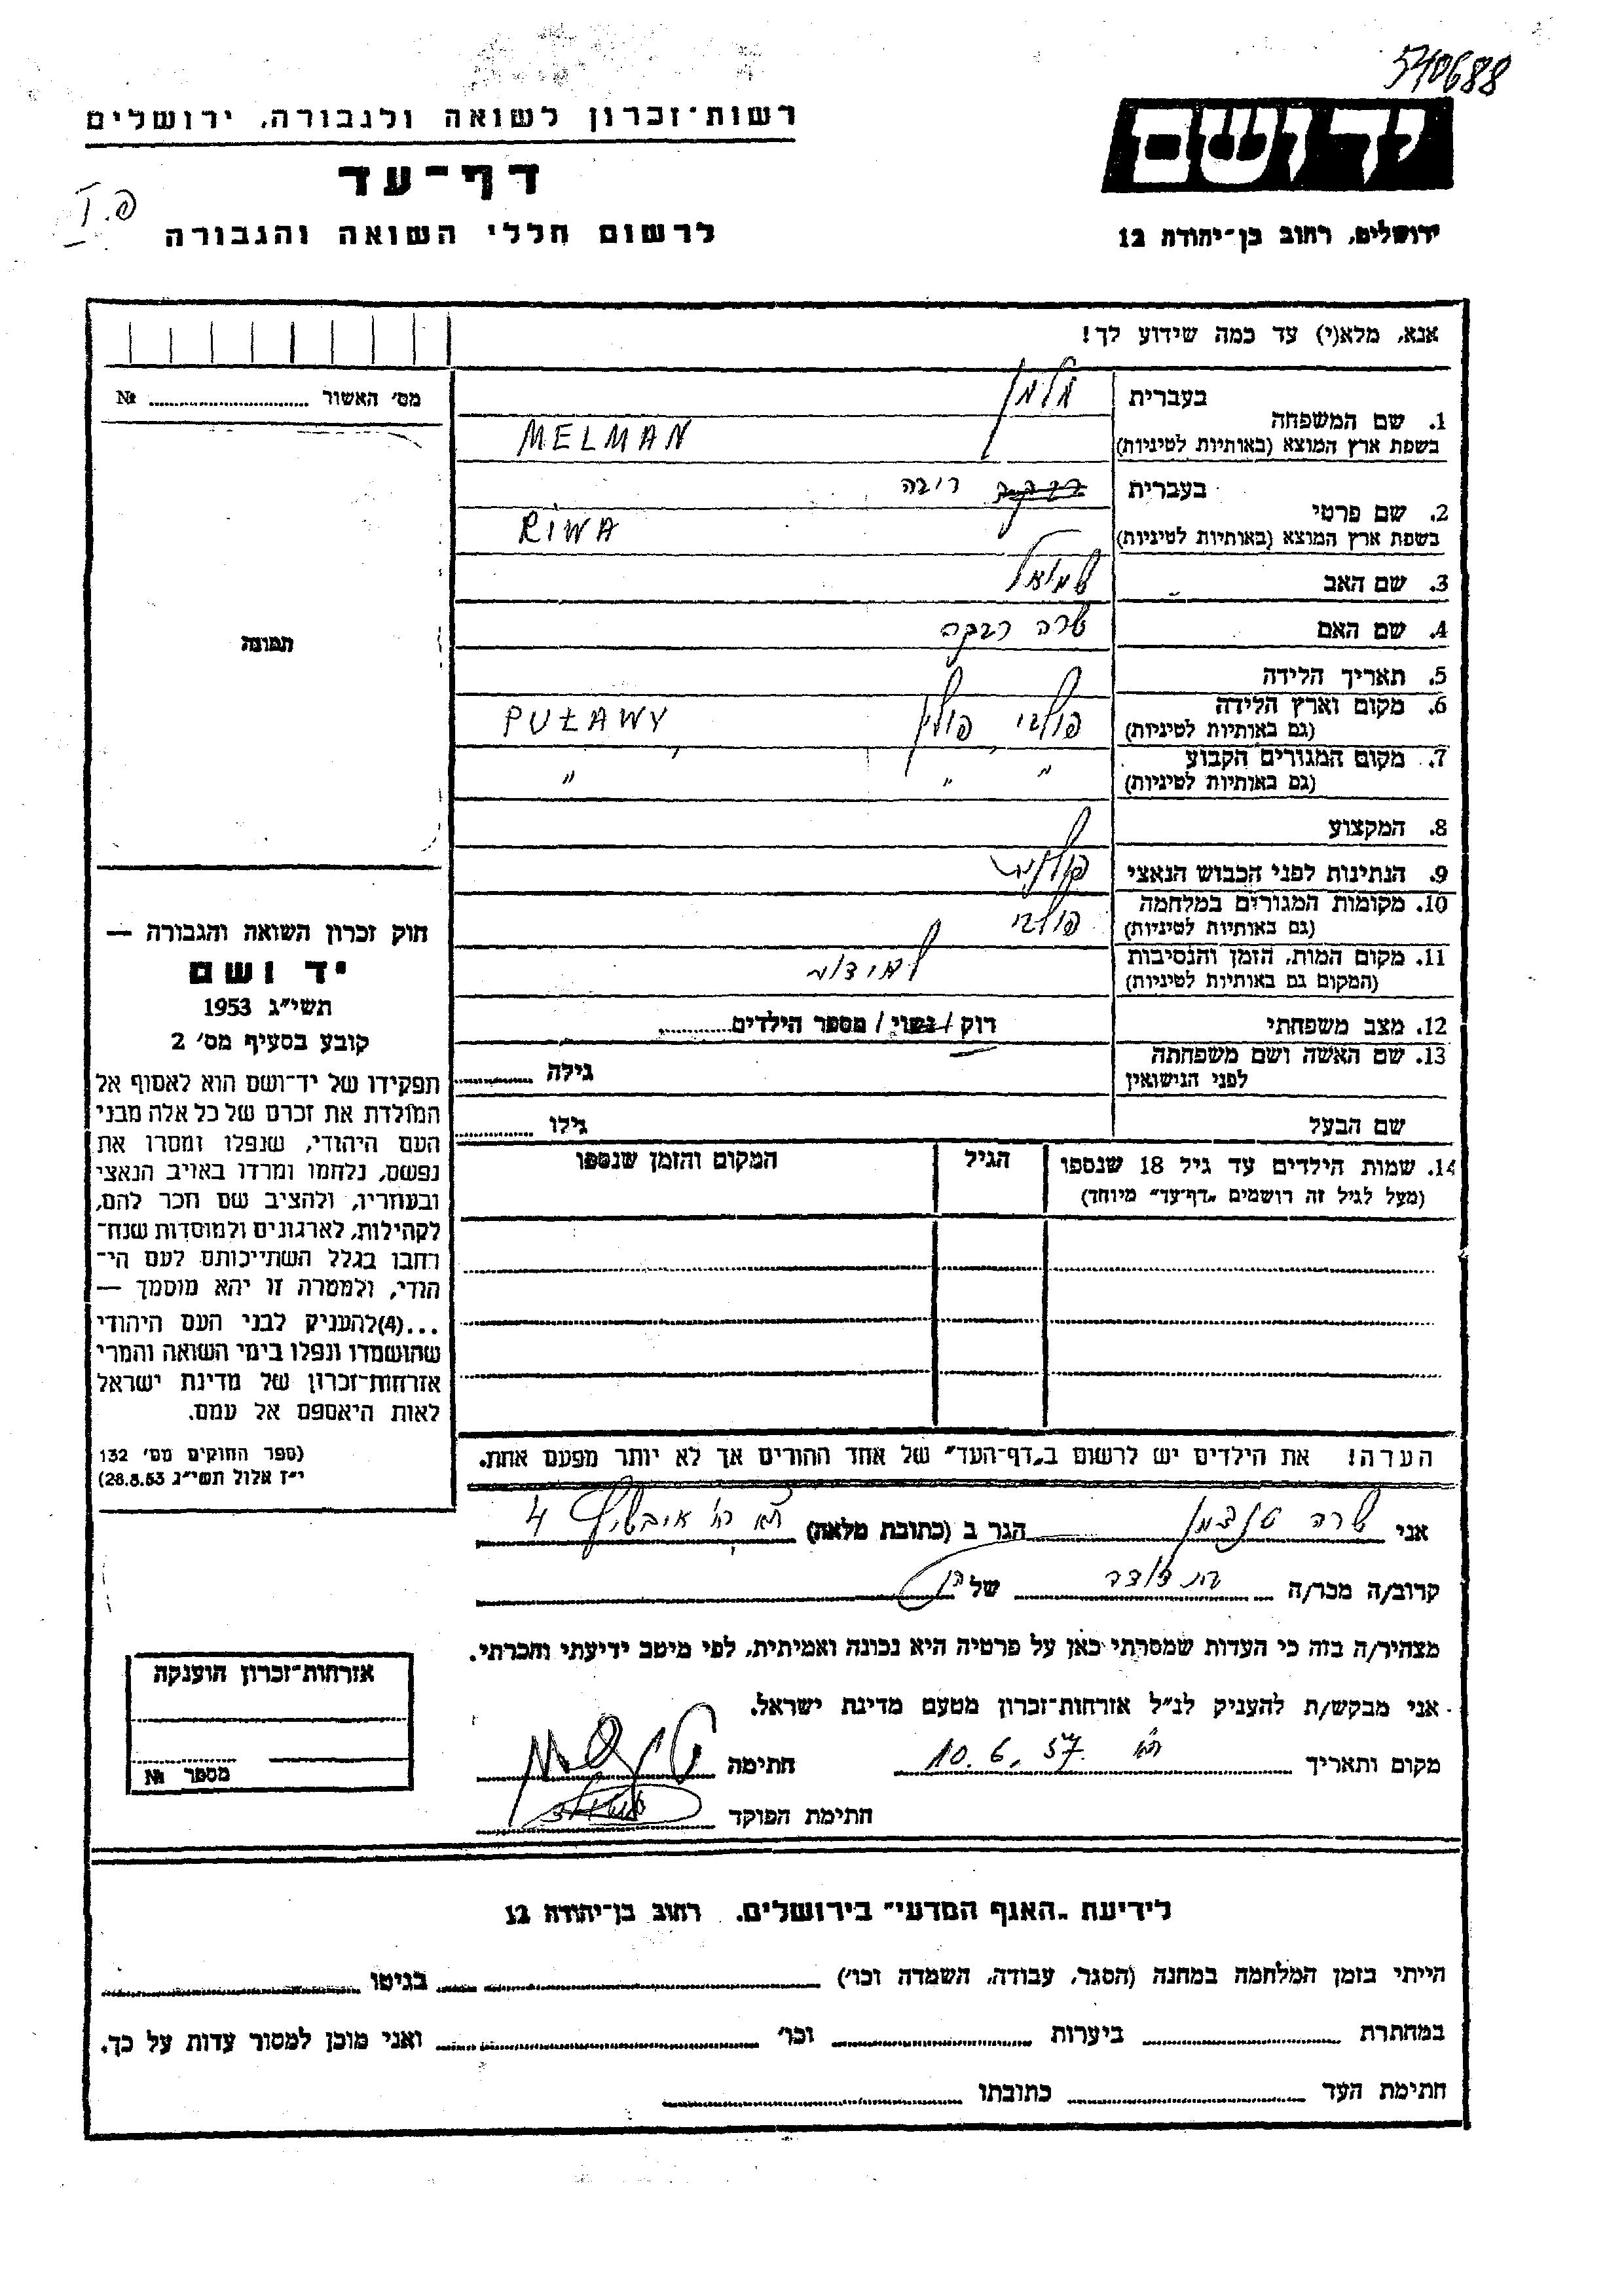 540688
יד ושם
ירושלים, רחוב בן-יהודה 12
רשות-זכרון לשואה ולגבורה, ירושלים
דף-עד
לרשום חללי השואה והגבורה
אנא, מלא(י) עד כמה שידוע לך!
1. שם המשפחה
בעברית מלמן
בשפת ארץ המוצא (באותיות לטיניות) MELMAN
2. שם פרטי
בעברית ריבה
בשפת ארץ המוצא (באותיות לטיניות) RIWA
3. שם האב שמואל
4. שם האם שרה רבקה
5. תאריך הלידה
6. מקום וארץ הלידה פולבי פולין PUŁAWY
(גם באותיות לטיניות)
7. מקום המגורים הקבוע " " "
(גם באותיות לטיניות)
8. המקצוע
9. הנתינות לפני הכבוש הנאצי פולנית
10. מקומות המגורים במלחמה פולבי
(גם באותיות לטיניות)
11. מקום המות, הזמן והנסיבות
(המקום גם באותיות לטיניות)
12. מצב משפחתי רוק / נשוי / מספר הילדים
13. שם האשה ושם משפחתה
לפני הנישואין גילה
שם הבעל גילו
14. שמות הילדים עד גיל 18 שנספו הגיל המקום והזמן שנספו
(מעל לגיל זה רושמים „דף-עד" מיוחד)
הערה! את הילדים יש לרשום ב„דף-העד" של אחד ההורים אך לא יותר מפעם אחת.
מס' האשור №
תמונה
חוק זכרון השואה והגבורה —
יד ושם
תשי"ג 1953
קובע בסעיף מס' 2
תפקידו של יד-ושם הוא לאסוף אל
המולדת את זכרם של כל אלה מבני
העם היהודי, שנפלו ומסרו את
נפשם, נלחמו ומרדו באויב הנאצי
ובעוזריו, ולהציב שם וזכר להם,
לקהילות, לארגונים ולמוסדות שנח-
רחבו בגלל השתייכותם לעם הי-
הודי, ולמטרה זו יהא מוסמך —
...(4)להעניק לבני העם היהודי
שהושמדו ונפלו בימי השואה והמרי
אזרחות-זכרון של מדינת ישראל
לאות היאספם אל עמם.
(ספר החוקים מס' 132
י"ז אלול תשי"ג 28.8.53)
אני שרה הגר ב (כתובת מלאה) 4
קרוב/ה מכר/ה בת דודה של
מצהיר/ה בזה כי העדות שמסרתי כאן על פרטיה היא נכונה ואמיתית, לפי מיטב ידיעתי והכרתי.
אני מבקש/ת להעניק לנ"ל אזרחות-זכרון מטעם מדינת ישראל.
מקום ותאריך 10.6.57 חתימה
חתימת הפוקד
אזרחות-זכרון הוענקה
מספר №
לידיעת „האגף המדעי" בירושלים, רחוב בן-יהודה 12
הייתי בזמן המלחמה במחנה (הסגר, עבודה, השמדה וכו') בגיטו
במחתרת ביערות וכו' ואני מוכן למסור עדות על כך.
חתימת העד כתובתו